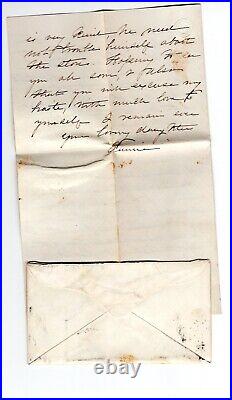 is very kind, he must
not trouble himself about
the store. Hoping to see
you all soon, &
that you will excuse my
haste, with much love to
yourself I remain ever
your loving daughter